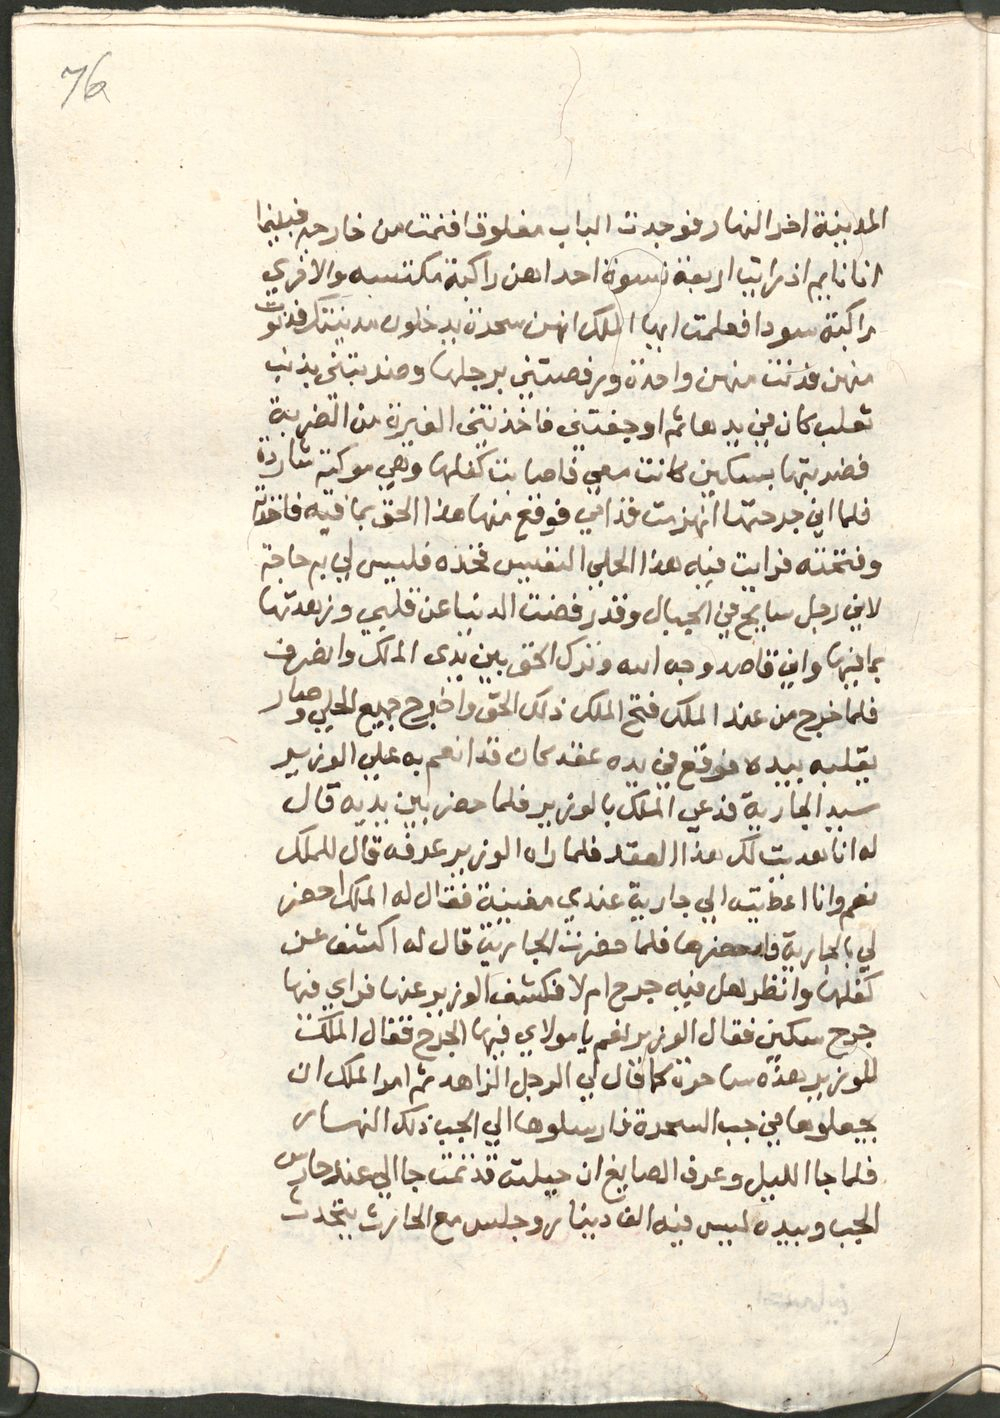 76
المدينة اخر النهار فوجدت الباب مغلوقا فنمت من خارجه فبينما
انا نايم اذ رايت اربعة نسوة احداهن راكبة مكنسه والاخري
راكبة سودا فعلمت ايها الملك انهن سحرة يدخلون مدينتك فدنوت
منهن فدنت منهن واحدة ورفصتني برجلها وضربتني بذنب
ثعلب كان في يدها ثم اوجعتني فاخذتني الغيرة من الضربة
فضربتها بسكين كانت معي فاصابت كفلها وهي موكنه شاردة
فلما اني جرحتها انهزمت قدامي فوقع منها هذا الحق بما فيه فاخذته
وفتحته فرايت فيه هذا الحلي النفيس فخذه فليس لي به حاجة
لاني رجل سايح في الجبال وقد رفضت الدنيا عن قلبي وزهدتها
بما فيها واني قاصد وجه الله وترك الحق بين يدى الملك وانصرف
فلما خرج من عند الملك فتح الملك ذلك الحق واخرج جميع الحلي وصار
يقلبه بيده فوقع في يده عقد كان قد انعم به علي الوزير
سيد الجارية فدعي الملك بالوزير فلما حضر بين يديه قال
له انا هديت لك هذا العقد فلما راه الوزير عرفه قال للملك
نعم وانا اعطيته الي جارية عندي مغنية فقال له الملك احضر
لي بالجارية فاحضرها فلما حضرت الجارية قال له اكشف عن
كفلها وانظر هل فيه جرح ام لا فكشف الوزير عنها فراي فيها
جرح سكين فقال الوزير نعم يا مولاي فيها الجرح فقال الملك
للوزير هذه ساحرة كما قال لي الرجل الزاهد ثم امر الملك ان
يجعلوها في جب السحرة فارسلوها الي الجب ذلك النهار
فلما جا الليل وعرف الصايغ ان حيلته قد تمت جا الي عند حارس
الجب وبيده لبيس فيه الف دينار وجلس مع الحارث يتحدث